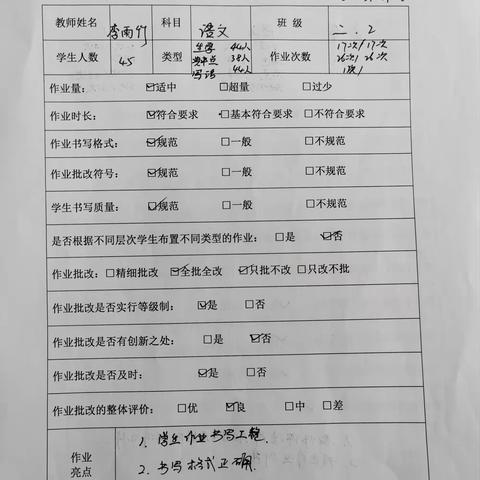 教师姓名 李雨竹 科目 语文 班 级 二.2
学生人数 45 类型 生字 44人 典中点 38人 写话 44人 作业次数 17次/17次 26次/26次 1次/
作业量: ☑适中 □超量 □过少
作业时长: ☑符合要求 □基本符合要求 □不符合要求
作业书写格式: ☑规范 □一般 □不规范
作业批改符号: ☑规范 □一般 □不规范
学生书写质量: ☑规范 □一般 □不规范
是否根据不同层次学生布置不同类型的作业: □是 ☑否
作业批改: □精细批改 ☑全批全改 ☑只批不改 □只改不批
作业批改是否实行等级制: ☑是 □否
作业批改是否有创新之处: □是 ☑否
作业批改是否及时: ☑是 □否
作业批改的整体评价: □优 ☑良 □中 □差
作业亮点
1. 学生作业书写工整.
2. 书写格式正确.